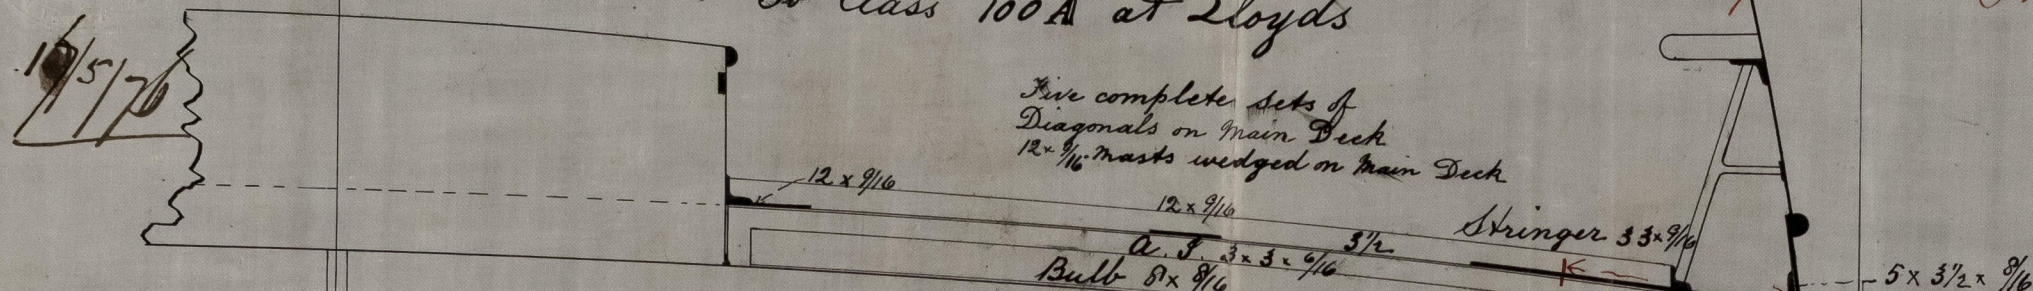 To Class 100 A at Lloyds
19/5/76
Five complete sets of
Diagonals on Main Deck
12 x 9/16 Masts wedged on Main Deck
12 x 9/16
12 x 9/16
Stringer 33 x 9/16
3 1/2
A. I. 3 x 3 x 6/16
Bulb 8 x 8/16
5 x 3 1/2 x 8/16